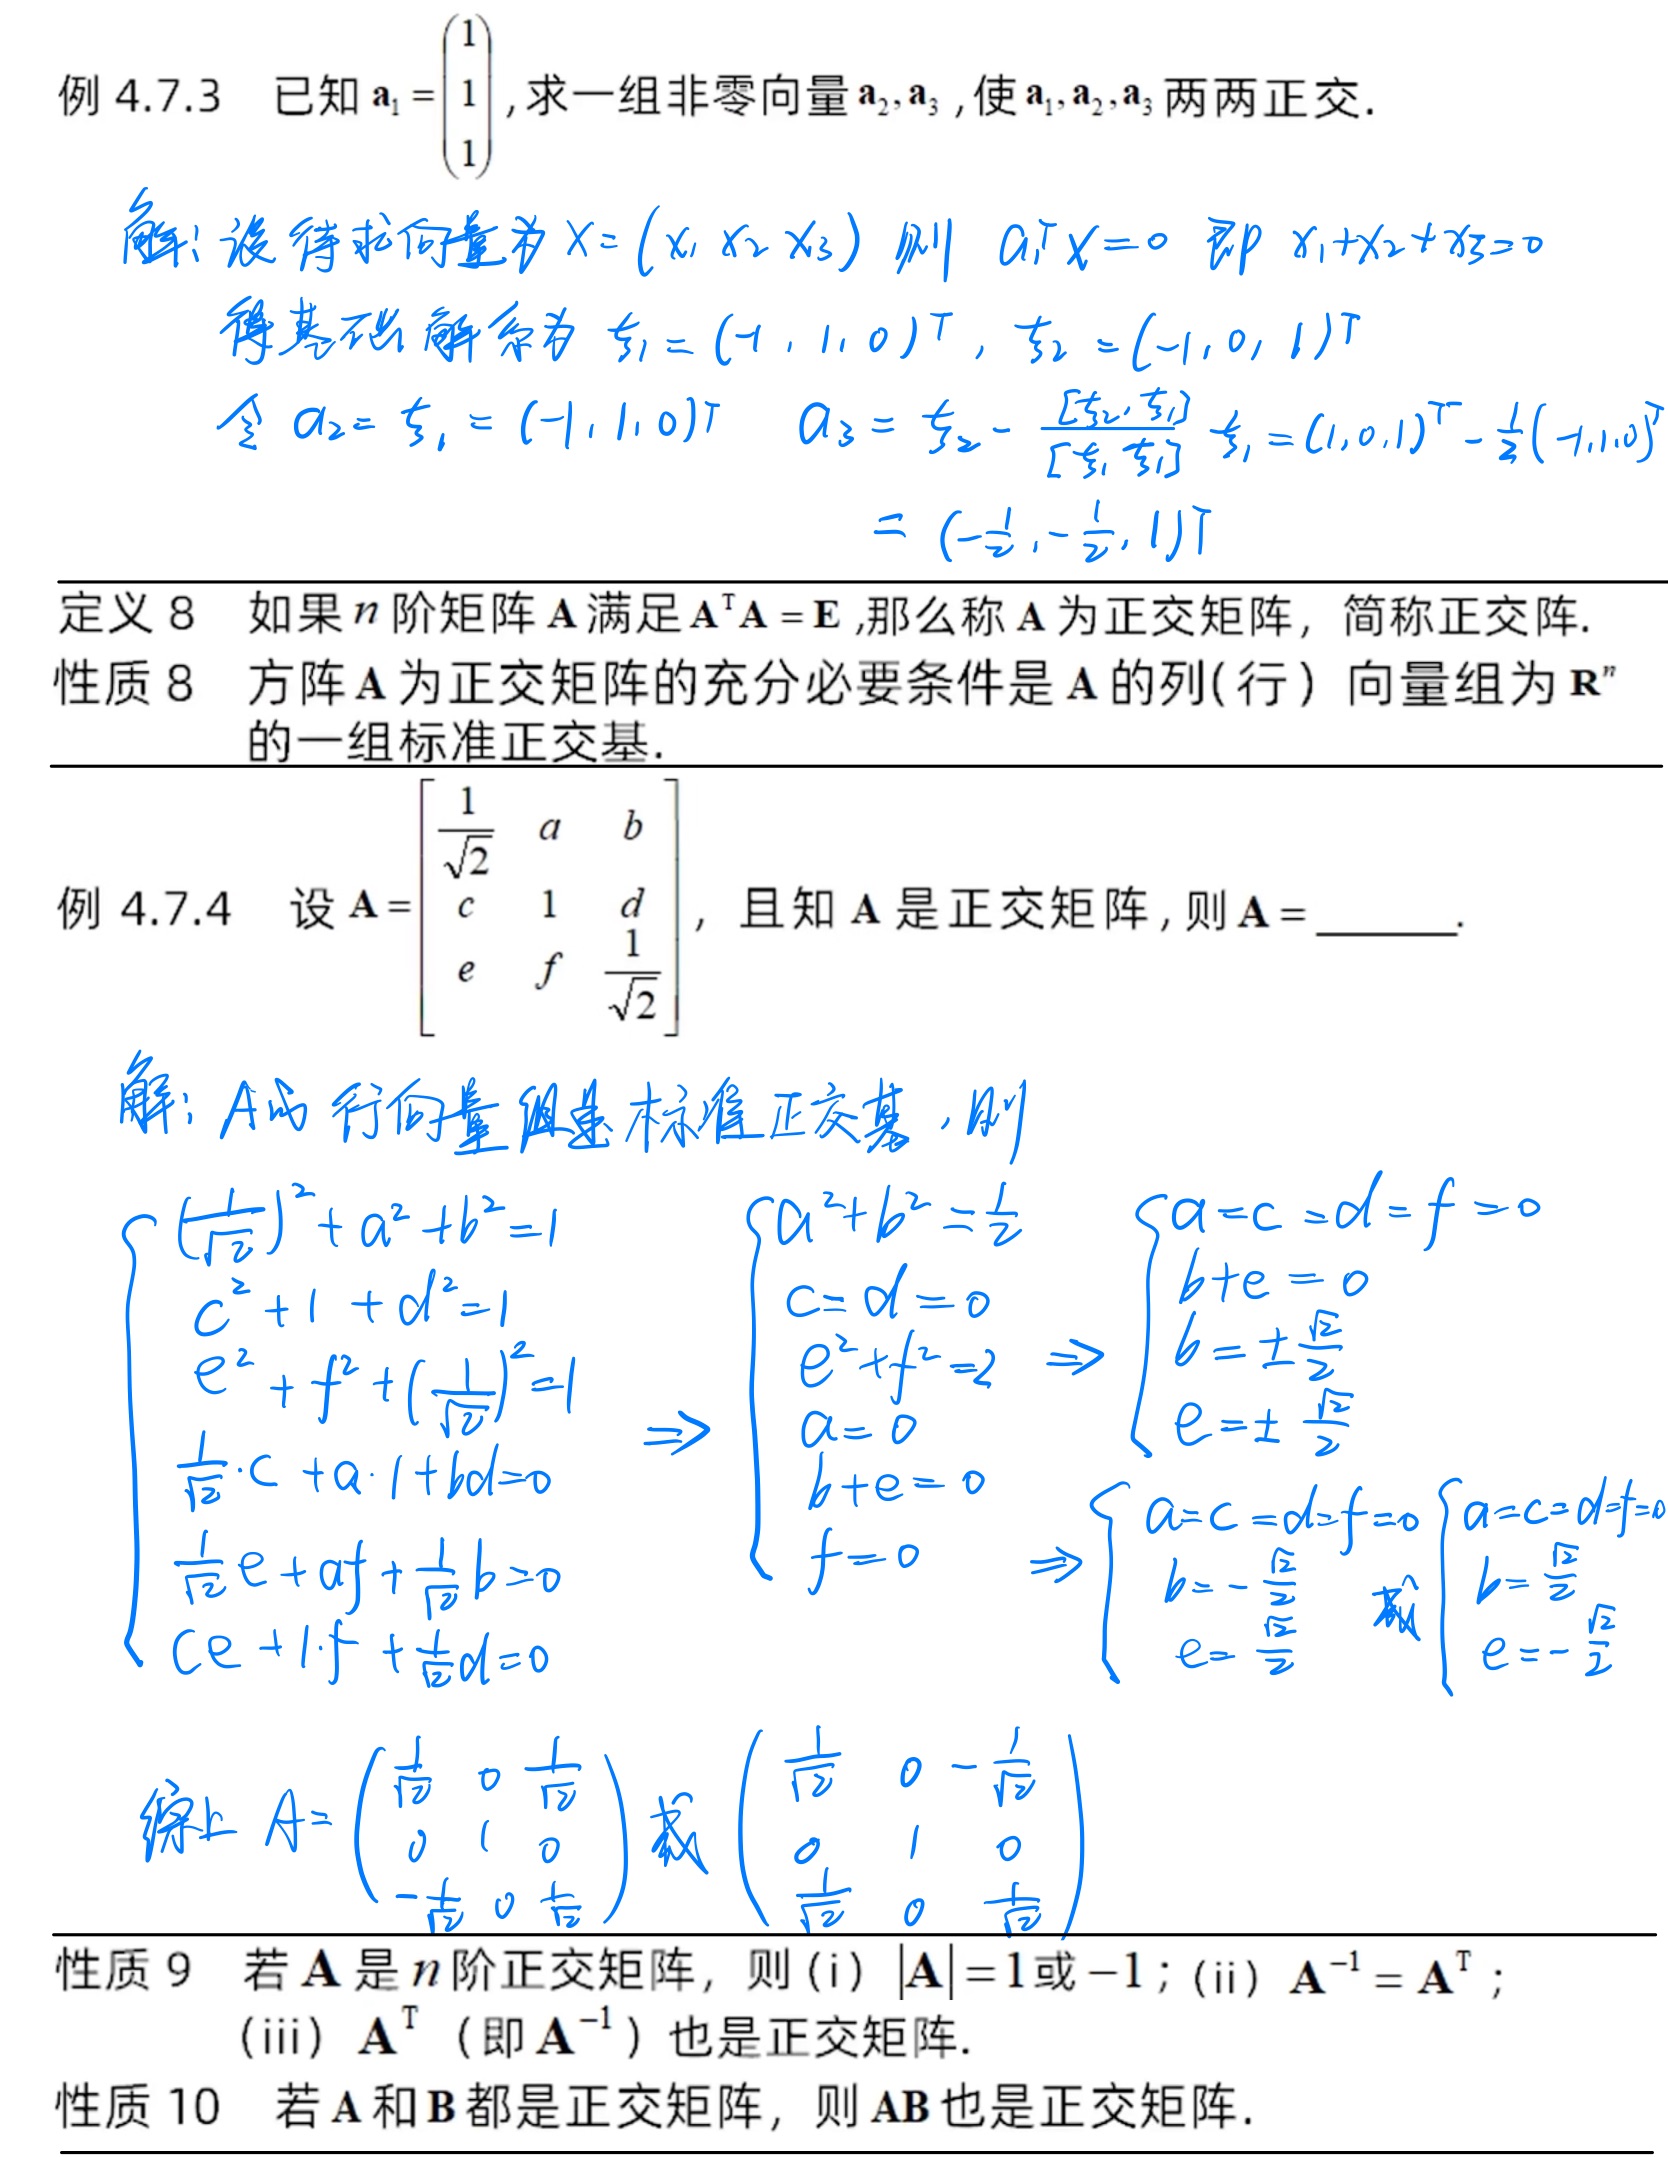 例 4.7.3 已知 a₁ = (1 1 1) ,求一组非零向量 a₂, a₃ ,使 a₁, a₂, a₃ 两两正交.
解: 设待求向量为 X = (x₁ x₂ x₃) 则 a₁ᵀX = 0 即 x₁+x₂+x₃=0
得基础解系为 ξ₁ = (-1, 1, 0)ᵀ, ξ₂ = (-1, 0, 1)ᵀ
令 a₂ = ξ₁ = (-1, 1, 0)ᵀ a₃ = ξ₂ - [ξ₂, ξ₁]/[ξ₁ ξ₁] ξ₁ = (1, 0, 1)ᵀ - 1/2(-1,1,0)ᵀ
= (-1/2, -1/2, 1)ᵀ
定义 8 如果 n 阶矩阵 A 满足 AᵀA = E ,那么称 A 为正交矩阵，简称正交阵.
性质 8 方阵 A 为正交矩阵的充分必要条件是 A 的列(行）向量组为 Rⁿ
的一组标准正交基.
例 4.7.4 设 A = [1/√2 a b; c 1 d; e f 1/√2] ，且知 A 是正交矩阵,则 A = ______.
解: A的行向量组是标准正交基, 则
{ (1/√2)² + a² + b² = 1
c² + 1 + d² = 1
e² + f² + (1/√2)² = 1
1/√2·c + a·1 + bd = 0
1/√2 e + af + 1/√2 b = 0
ce + 1·f + 1/√2 d = 0
⇒ { a² + b² = 1/2
c = d = 0
e² + f² = 2
a = 0
b + e = 0
f = 0
⇒ { a = c = d = f = 0
b + e = 0
b = ± √2/2
e = ± √2/2
⇒ { a = c = d = f = 0
b = - √2/2
e = √2/2
或 { a = c = d = f = 0
b = √2/2
e = - √2/2
综上 A = (1/√2 0 1/√2; 0 1 0; -1/√2 0 1/√2) 或 (1/√2 0 -1/√2; 0 1 0; 1/√2 0 1/√2)
性质 9 若 A 是 n 阶正交矩阵，则 (i) |A| = 1或 −1；(ii) A⁻¹ = Aᵀ；
(iii) Aᵀ (即 A⁻¹) 也是正交矩阵.
性质 10 若 A 和 B 都是正交矩阵，则 AB 也是正交矩阵.